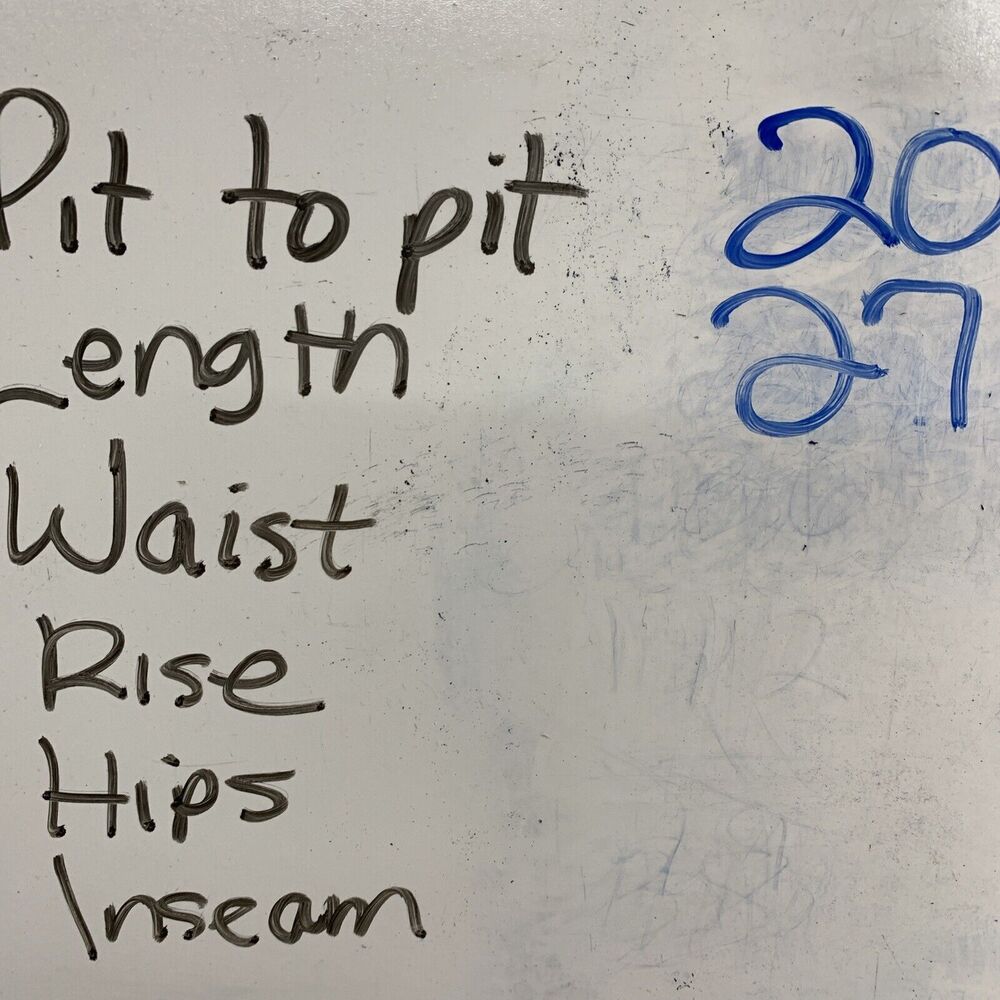 Pit to pit 20
Length 27
Waist
Rise
Hips
Inseam